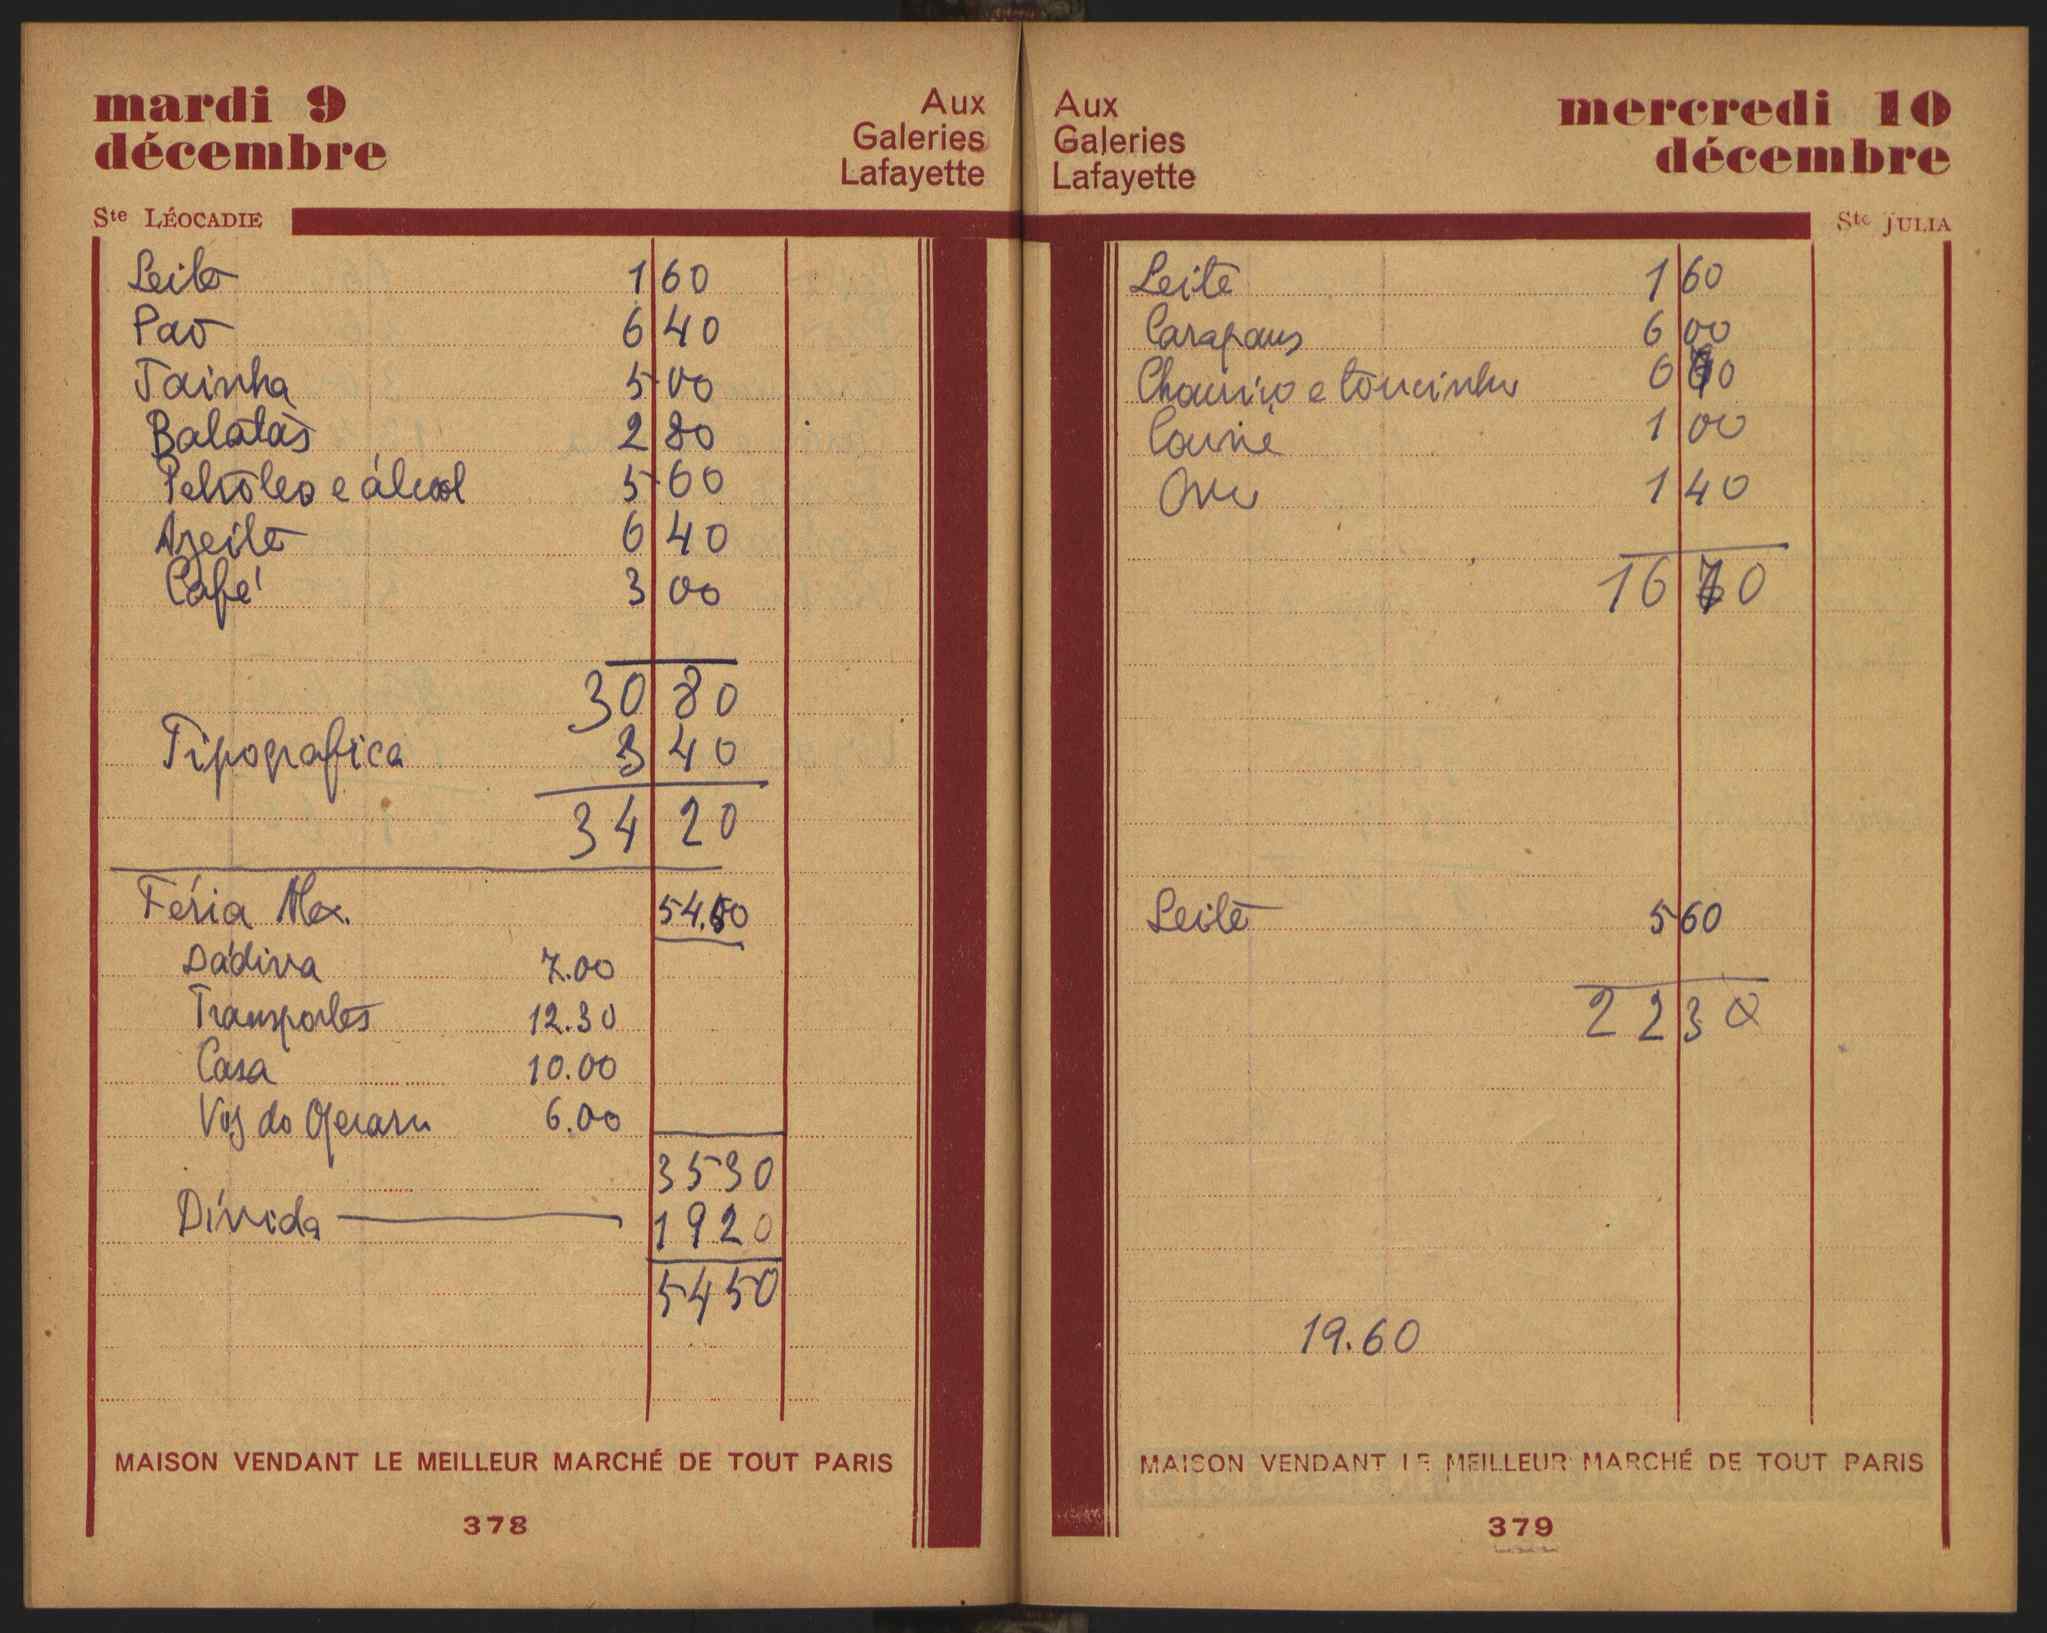 mardi 9
décembre
Aux
Galeries
Lafayette
Ste LÉOCADIE
Leite 1 60
Pão 6 40
Tainha 5 00
Batatas 2 80
Petróleo e álcool 5 60
Azeite 6 40
Café 3 00
30 80
Tipografica 3 40
34 20
Féria Alex. 54.50
Dádiva 7.00
Transportes 12.30
Casa 10.00
Voz do Operario 6.00
35 30
Dívida 19 20
54 50
MAISON VENDANT LE MEILLEUR MARCHÉ DE TOUT PARIS
378
Aux
Galeries
Lafayette
mercredi 10
décembre
Ste JULIA
Leite 1 60
Carapaus 6 00
Chouriço e toucinho 6 70
Couve 1 00
Ovo 1 40
16 70
Leite 5 60
22 30
19.60
MAISON VENDANT LE MEILLEUR MARCHÉ DE TOUT PARIS
379